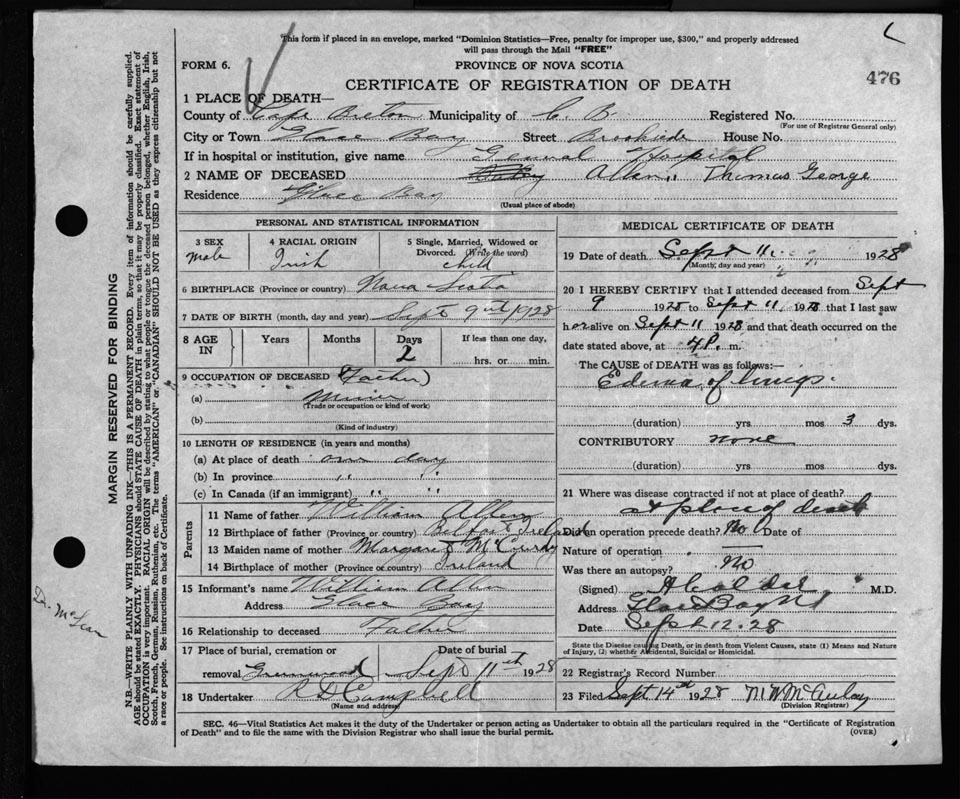 This form if placed in an envelope, marked "Dominion Statistics—Free, penalty for improper use, $300," and properly addressed
will pass through the Mail "FREE"
FORM 6.
PROVINCE OF NOVA SCOTIA
476
CERTIFICATE OF REGISTRATION OF DEATH
1 PLACE OF DEATH—
County of Cape Breton Municipality of C. B. Registered No.
(For use of Registrar General only)
City or Town Glace Bay Street Brookside House No.
If in hospital or institution, give name General Hospital
2 NAME OF DECEASED Allen, Thomas George
Residence Glace Bay
(Usual place of abode)
PERSONAL AND STATISTICAL INFORMATION
3 SEX 4 RACIAL ORIGIN 5 Single, Married, Widowed or
Divorced. (Write the word)
Male Irish child
6 BIRTHPLACE (Province or country) Nova Scotia
7 DATE OF BIRTH (month, day and year) Sept 9th/1928
8 AGE IN Years Months Days If less than one day,
2
hrs. or min.
9 OCCUPATION OF DECEASED (Father)
(a) Miner
(Trade or occupation or kind of work)
(b)
(Kind of industry)
10 LENGTH OF RESIDENCE (in years and months)
(a) At place of death one day
(b) In province " "
(c) In Canada (if an immigrant) " "
Parents
11 Name of father William Allen
12 Birthplace of father (Province or country) Belfast Ireland
13 Maiden name of mother Margaret McCurdy
14 Birthplace of mother (Province or country) Ireland
15 Informant's name William Allen
Address Glace Bay
16 Relationship to deceased Father
17 Place of burial, cremation or Date of burial
removal Greenwood Sept 11th 1928
18 Undertaker R D Campbell
(Name and address)
MEDICAL CERTIFICATE OF DEATH
19 Date of death Sept 11 1928
(Month, day and year)
20 I HEREBY CERTIFY that I attended deceased from Sept
9 1928 to Sept 11 1928 that I last saw
h er alive on Sept 11 1928 and that death occurred on the
date stated above, at 4 P. m.
The CAUSE OF DEATH was as follows:—
Edema of lungs.
(duration) yrs mos 3 dys.
CONTRIBUTORY none
(duration) yrs. mos dys.
21 Where was disease contracted if not at place of death?
at place of death
Did an operation precede death? No Date of
Nature of operation
Was there an autopsy? No
(Signed) M.D.
Address Glace Bay NS
Date Sept 12.28
State the Disease causing Death, or in death from Violent Causes, state (1) Means and Nature
of Injury, (2) whether Accidental, Suicidal or Homicidal.
22 Registrar's Record Number
23 Filed Sept 14th 1928 McAulay
(Division Registrar)
SEC. 46—Vital Statistics Act makes it the duty of the Undertaker or person acting as Undertaker to obtain all the particulars required in the "Certificate of Registration
of Death" and to file the same with the Division Registrar who shall issue the burial permit.
(OVER)
MARGIN RESERVED FOR BINDING
N.B—WRITE PLAINLY WITH UNFADING INK—THIS IS A PERMANENT RECORD. Every item of information should be carefully supplied.
AGE should be stated EXACTLY. PHYSICIANS should STATE CAUSE OF DEATH in plain terms, so that it may be properly classified. Exact statement of
OCCUPATION is very important. RACIAL ORIGIN will be described by stating to what people or tongue the deceased person belonged, whether English, Irish,
Scotch, French, German, Russian, Ruthenian, etc. The terms "AMERICAN" or "CANADIAN" SHOULD NOT BE USED as they express citizenship but not
a race or people. See instructions on back of Certificate.